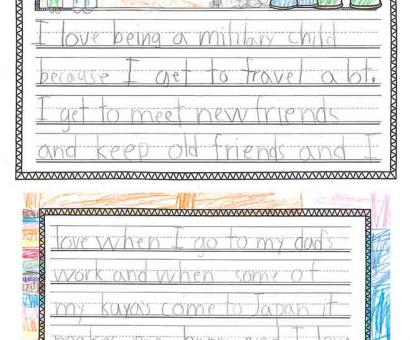 I love being a military child
because I get to travel a lot.
I get to meet new friends
and keep old friends and I
love when I go to my dad's
work and when some of
my kuya's come to Japan it
and I love